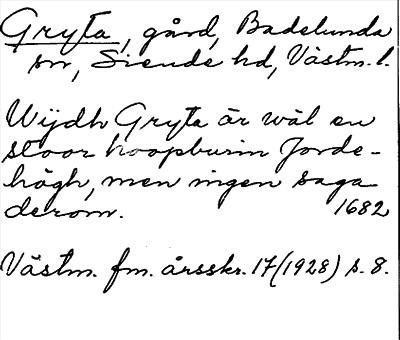 Gryta, gård, Badelunda
sn, Siende hd, Västm. l.
Wijdh Gryta är wäl en
stoor hoopburin Jorde-
högh, men ingen saga
derom. 1682
Västm. fm. årsskr. 17 (1928) s. 8.